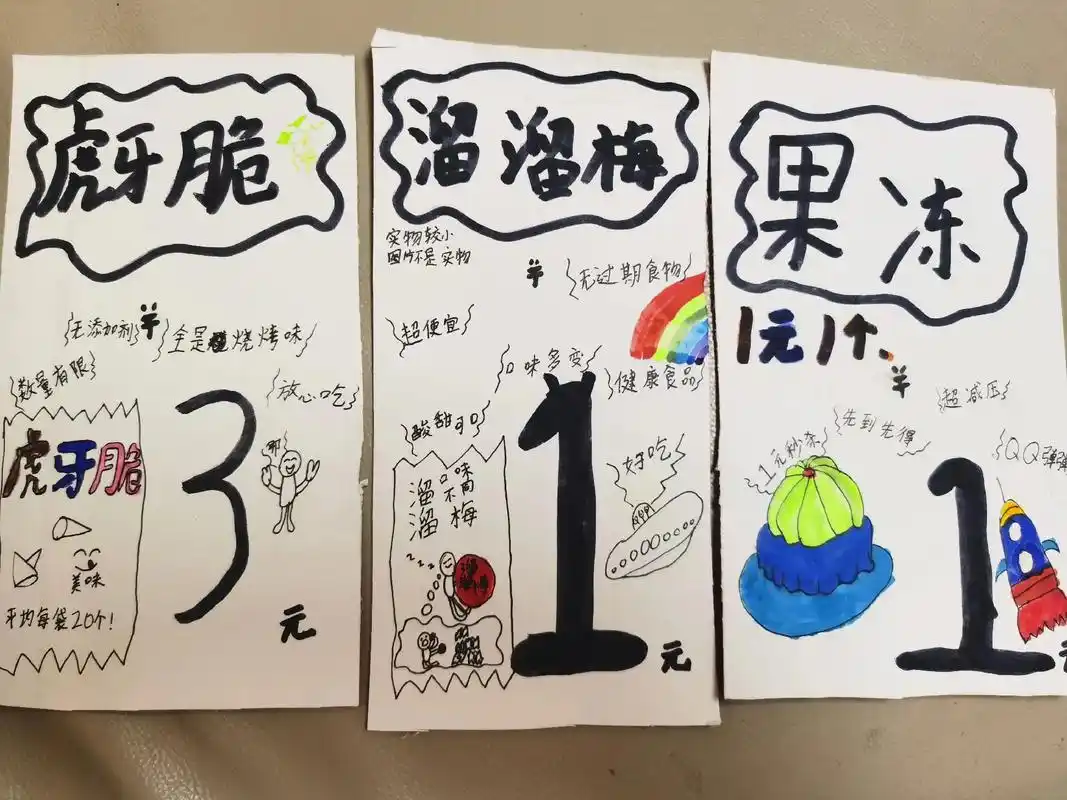 虎牙脆
无添加剂
羊
全是烧烤味
数量有限
放心吃
虎牙脆
3
美味
平均每袋20个!
元
溜溜梅
实物较小
图片不是实物
羊
无过期食物
超便宜
口味多变
健康食品
酸甜可口
好吃
溜溜梅
口味不同
1
元
果冻
1元1个.
羊
超减压
先到先得
1元秒杀
QQ弹弹
1